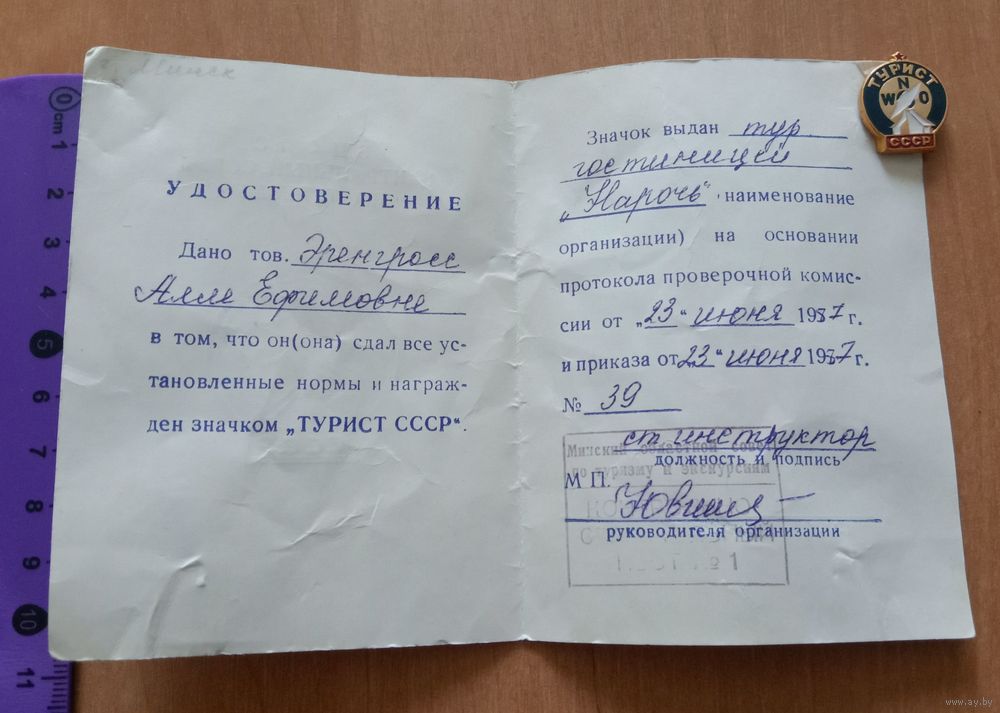 г. Минск
УДОСТОВЕРЕНИЕ
Дано тов. Эренгросс
Алле Ефимовне
в том, что он(она) сдал все ус-
тановленные нормы и награж-
ден значком „ТУРИСТ СССР“.
Значок выдан тур
гостиницей
„Нарочь“ наименование
организации) на основании
протокола проверочной комис-
сии от „23“ июня 1987 г.
и приказа от „23“ июня 1987 г.
№ 39
ст. инструктор
должность и подпись
М П.
руководителя организации
Минский областной совет
по туризму и экскурсиям
№ 1
ТУРИСТ
N
W O
СССР
0 cm 1 2 3 4 5 6 7 8 9 10 11
www.ay.by